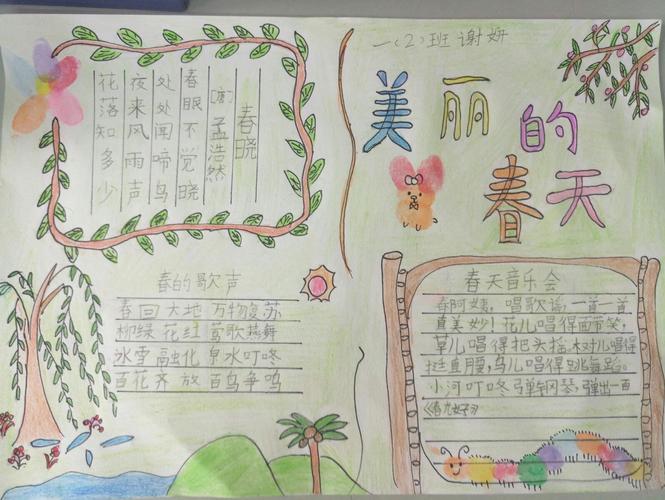 一（2）班 谢妍
美丽的
春天
春晓
[唐] 孟浩然
春眠不觉晓
处处闻啼鸟
夜来风雨声
花落知多少
春的歌声
春回大地 万物复苏
柳绿花红 莺歌燕舞
冰雪融化 泉水叮咚
百花齐放 百鸟争鸣
春天音乐会
春阿姨，唱歌谣，一首一首
真美妙！花儿唱得面带笑，
草儿唱得把头摇，树儿唱得
挺直腰，鸟儿唱得跳舞蹈。
小河叮咚弹钢琴，弹出一曲
《春光好》